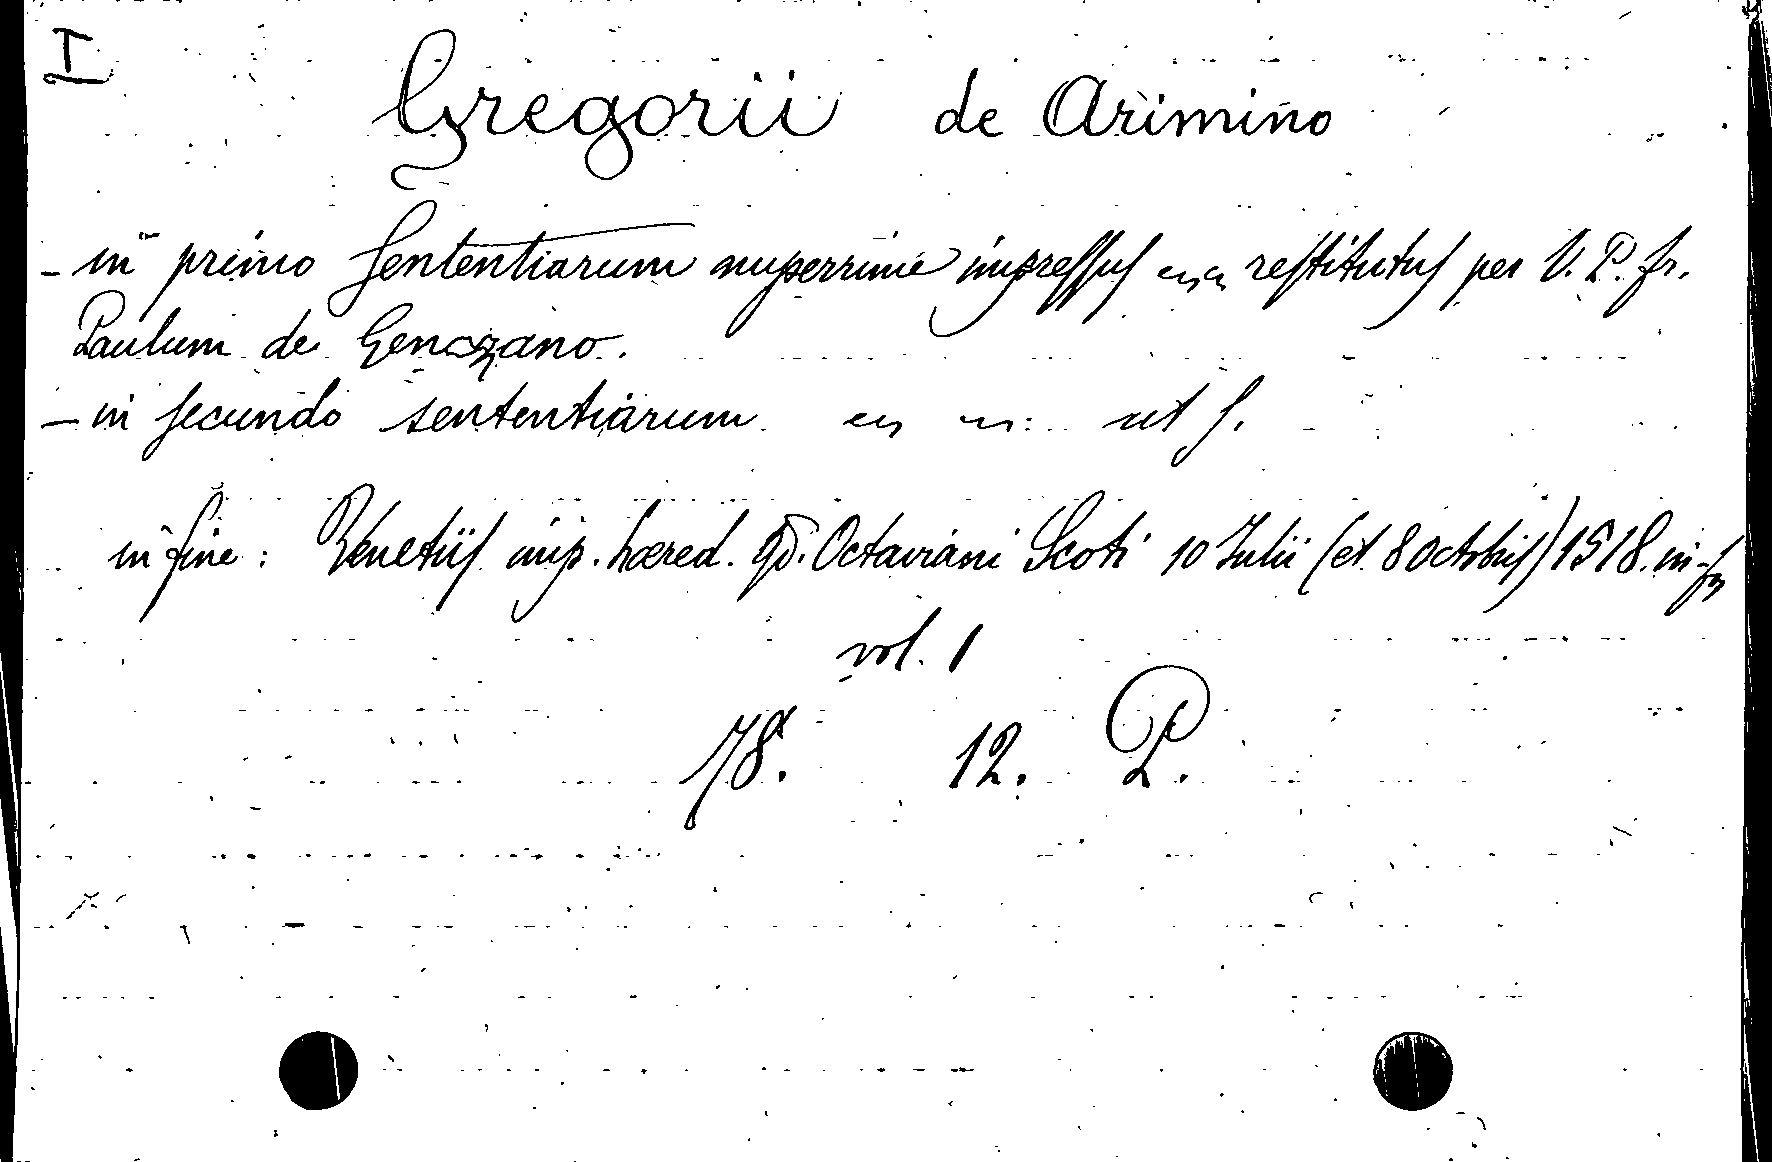 I
Gregorii de Arimino
- in primo Sententiarum nuperrime impressus restitutus per V. P. fr.
Paulum de Genazano.
- in secundo sententiarum ut s.
in fine: Venetiis imp. hæred. qd. Octaviani Scoti 10 Julii (et 8 octobris) 1518. in-fº
vol. 1
78. 12. P.